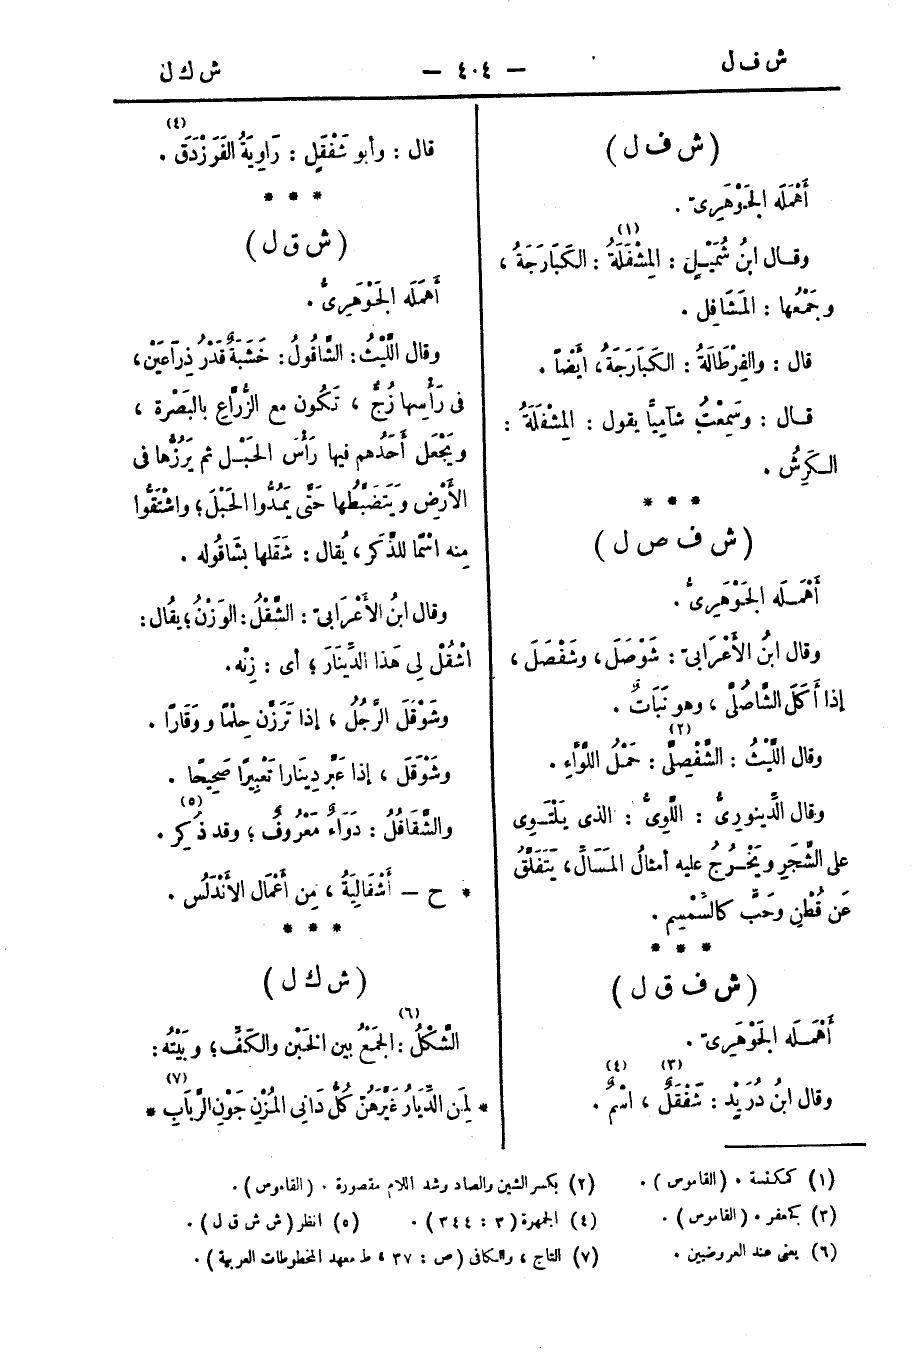 ش ف ل
— ٤٠٤ —
ش ك ل
(ش ف ل)
أَهْمَلَه الجَوْهَرِىّ .
(١)
وقال ابنُ شُمَيْلٍ : المِشْفَلَةُ : الكَبَارَجَةُ ،
وجَمْعُها : المَشَافِل .
قال : والفِرْطَالَةُ : الكَبَارَجَةُ، أيْضاً .
قال : وسَمِعْتُ شآمِياً يقول : المِشْفَلَةُ :
الكَرِشُ .
* * *
(ش ف ص ل)
أَهْمَلَه الجَوْهَرِىُّ .
وقال ابنُ الأَعْرَابىّ : شَوْصَلَ ، وشَفْصَلَ ،
إذا أَكَلَ الشَّاصُلَّى ، وهو نَبَاتٌ .
(٢)
وقال اللَّيْثُ : الشِّفْصِلَّى : حَمْلُ اللَّوَّاءِ .
وقال الدِّينورِىُّ : اللَّوِىُّ : الذى يَلْتَوِى
على الشَّجَرِ ويَخْرُجُ عليه أمثالُ المَسَالِّ، يَتَفَلَّقُ
عَن قُطْنٍ وحَبٍّ كالسِّمْسِمِ .
* * *
(ش ف ق ل)
أَهْمَلَه الجَوْهَرِىّ .
(٣) (٤)
وقال ابنُ دُرَيْدٍ : شَفْقَلٌ ، اسْمٌ .
(٤)
قال : وأبو شَفْقَلٍ : رَاوِيَةُ الفَرَزْدَقِ .
* * *
(ش ق ل)
أَهْمَلَه الجَوْهَرِىُّ .
وقال اللَّيْثُ: الشَّاقُولُ: خَشَبَةٌ قَدْرُ ذِرَاعَيْن،
فى رَأْسِها زُجٌّ ، تَكُون مع الزُّرَّاعِ بالبَصْرة ،
ويَجْعَل أَحَدُهم فيها رَأْسَ الحَبْلِ ثم يَرُزُّها فى
الأَرْضِ ويَتَضَبَّطُها حَتَّى يَمُدُّوا الحَبْلَ؛ واشْتَقُّوا
منه اسْمًا للذَّكَر ، يُقال : شَقَلها بشَاقُوله .
وقال ابنُ الأَعْرَابىّ : الشَّقْلُ: الوَزْنُ؛ يقُال:
اشْقُلْ لِى هَذا الدِّينَارَ ؛ أى : زِنْه.
وشَوْقَلَ الرَّجُلُ ، إذا تَرَزَّن حِلْمًا و وَقَارًا .
وشَوْقَلَ ، إذا عَبَّر دِينَارا تَعْبِيرًا صَحِيحًا .
(٥)
والشَّقَاقُلُ : دَوَاءٌ مَعْرُوفٌ ؛ وقد ذُكِر .
* ح — أَشْقَالِيَةُ ، مِن أَعْمَال الأَنْدَلُس .
* * *
(ش ك ل)
(٦)
الشَّكْلُ : الجَمْعُ بين الخَبْن والكَفِّ؛ وبَيْتُه :
(٧)
* لِمَن الدِّيَارُ غَيَّرَهُنّ كُلُّ دَانِى المُزْنِ جَوْنِ الرَّبَابِ *
(١) كمكنسة . (القاموس) .
(٢) بكسر الشين والصاد وشد اللام مقصورة . (القاموس) .
(٣) كجعفر . (القاموس) .
(٤) الجمهرة (٣ : ٣٤٤) .
(٥) انظر (ش ش ق ل) .
(٦) يعنى عند العروضيين .
(٧) التاج ، والكافى (ص : ٣٧ ، ط معهد المخطوطات العربية) .